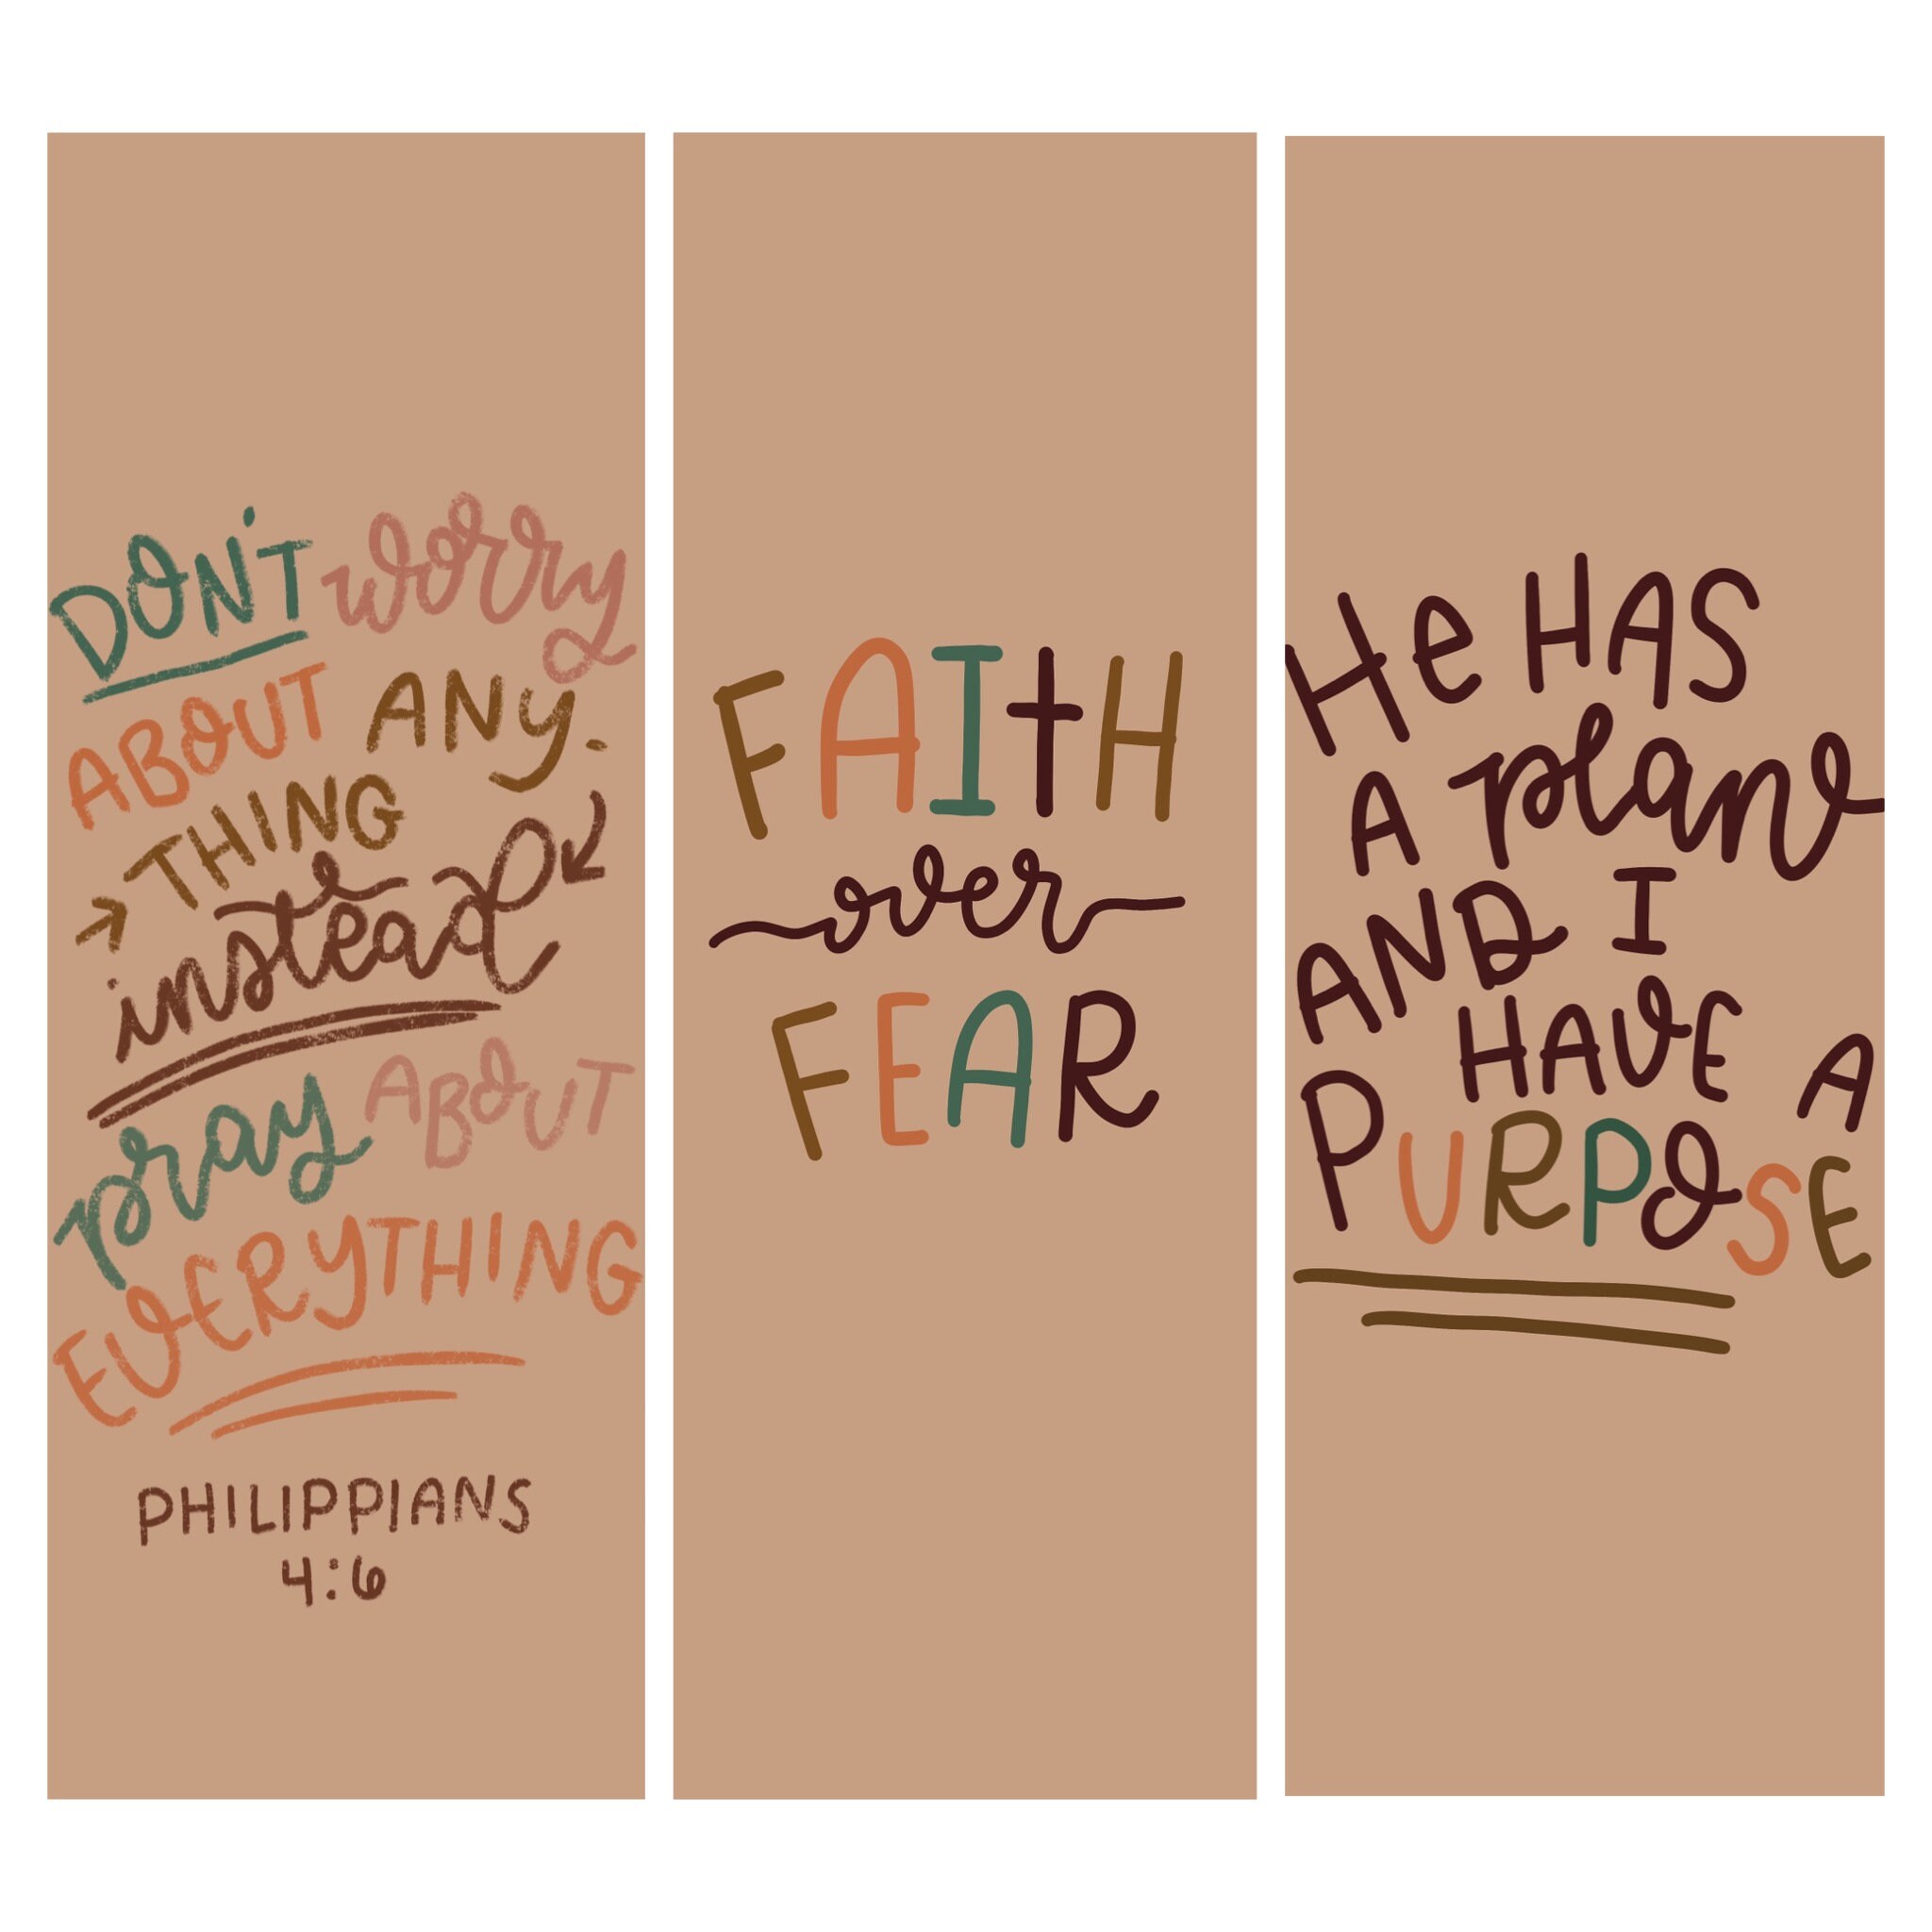 DON'T worry
ABOUT ANY-
THING
instead
pray ABOUT
EVERYTHING
PHILIPPIANS
4:6
FAItH
over
FEAR
He HAS
A plan
AND I
HAVE A
PURPOSE